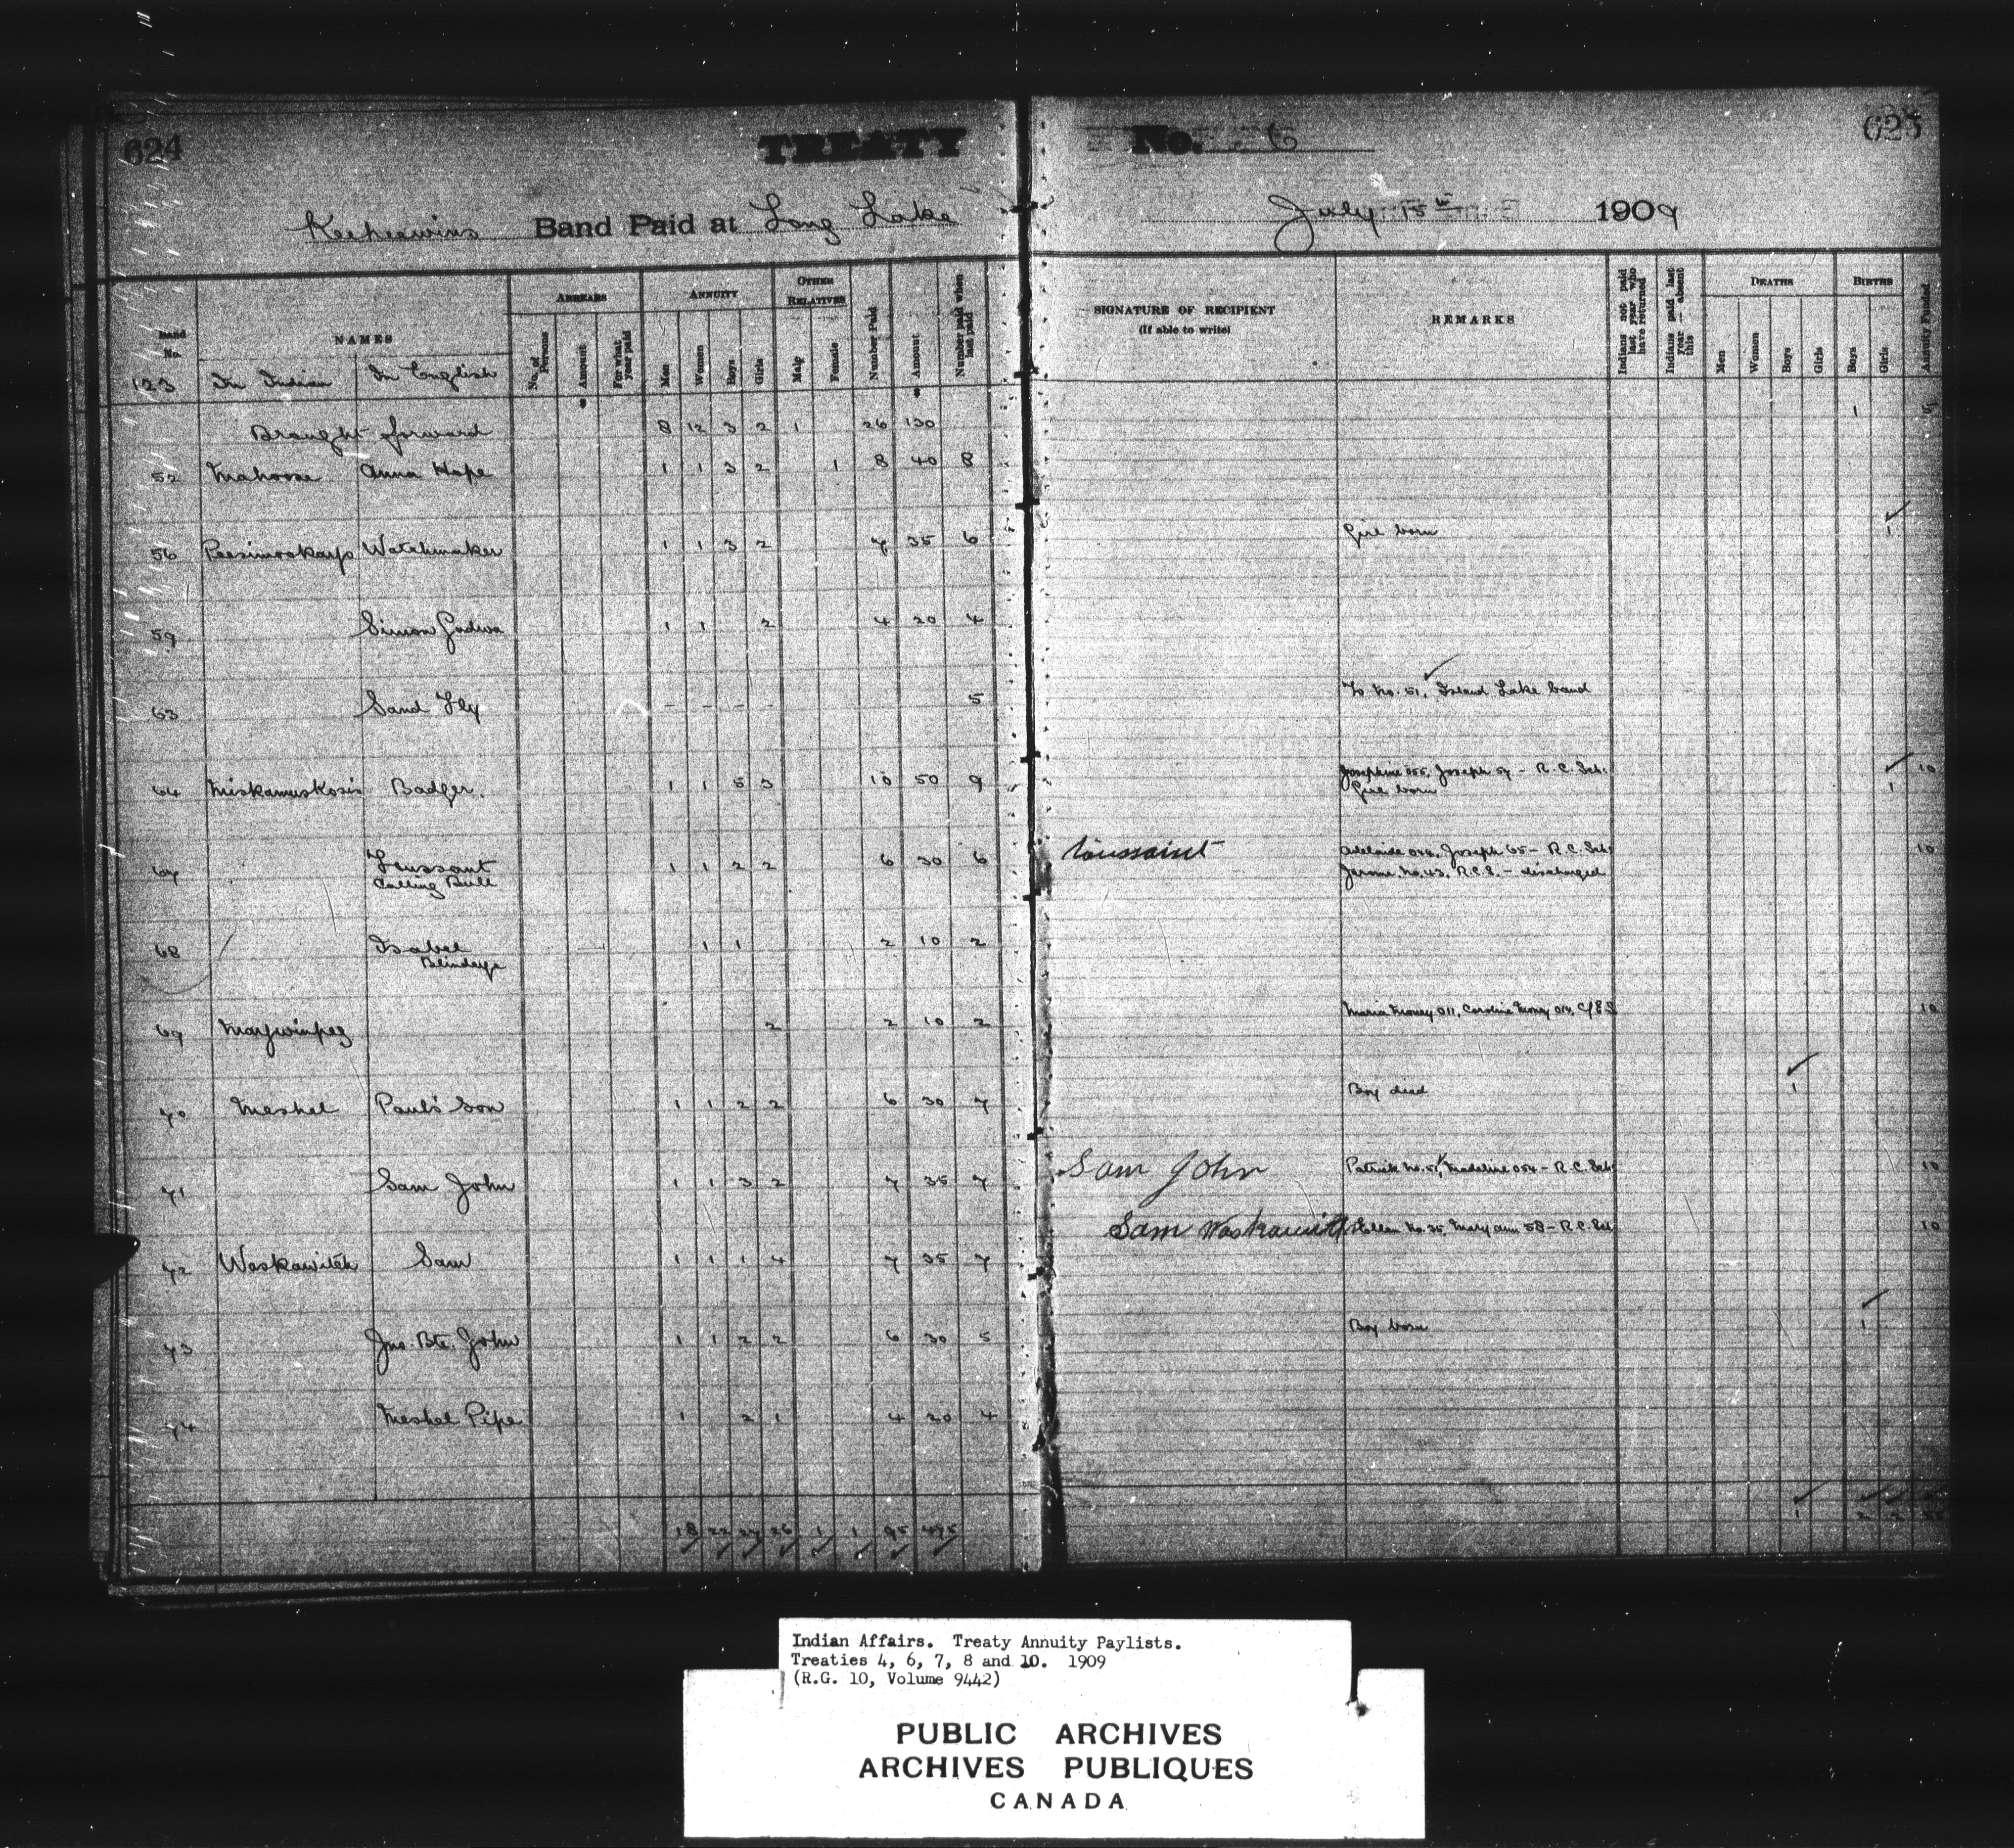 624
TREATY
No. 6
625
Keeheewins Band Paid at Long Lake
July 15th 1909
Band No.
NAMES
ARREARS
ANNUITY
OTHER RELATIVES
No. of Persons
Amount
For what year paid
Men
Women
Boys
Girls
Male
Female
Number Paid
Amount
Number paid when last paid
SIGNATURE OF RECIPIENT
(If able to write)
REMARKS
Indians not paid last year who have returned
Indians paid last year — absent this
DEATHS
Men
Women
Boys
Girls
BIRTHS
Boys
Girls
Annuity Funded
123 In Indian In English
Brought forward 8 12 3 2 1 26 130 1
52 Mahoose Anna Hope 1 1 3 2 1 8 40 8
56 Peesimookarp Watchmaker 1 1 3 2 7 35 6 Girl born 1
59 Simon Gadwa 1 1 2 4 20 4
63 Sand Fly - - - - 5 To No. 51, Island Lake band
64 Miskamuskosis Badger 1 1 5 3 10 50 9 Josephine 055, Joseph 57 - R.C. Sch. 10
Girl born 1
67 Toussant 1 1 2 2 6 30 6 toussaint Adelaide 044, Joseph 65 - R.C. Sch. 10
Calling Bull Jerome No. 43, R.C.S. - discharged
68 Isabel 1 1 2 10 2
Blindeye
69 Maywinpeg 2 2 10 2 Maria Money 011, Caroline Money 014, 10
70 Meshel Paul's Son 1 1 2 2 6 30 7 Boy died 1
71 Sam John 1 1 3 2 7 35 7 Sam John Patrick No. 51, Madeline 054 - R.C. Sch. 10
72 Waskawitch Sam 1 1 1 4 7 35 7 Sam Waskawitch Ellen No. 35, Mary Ann 58 - R.C. Sch. 10
73 Jno. Bte. John 1 1 2 2 6 30 5 Boy born 1
74 Meshel Pipe 1 2 1 4 20 4
18 22 27 26 1 1 95 475 1 2 2
Indian Affairs. Treaty Annuity Paylists.
Treaties 4, 6, 7, 8 and 10. 1909
(R.G. 10, Volume 9442)
PUBLIC ARCHIVES
ARCHIVES PUBLIQUES
CANADA